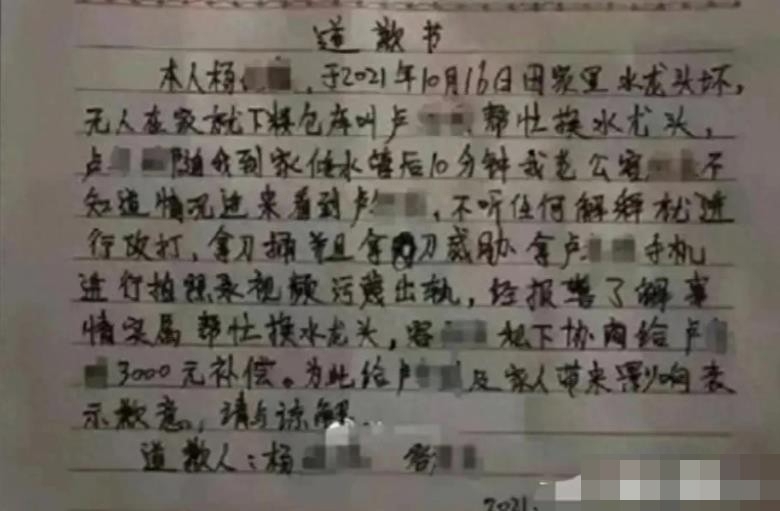 道歉书
本人杨，于2021年10月16日因家里水龙头坏，
无人在家就下楼仓库叫卢帮忙换水龙头，
卢随我到家修水管后10分钟我老公容不
知道情况进来看到卢，不听任何解释就进
行攻打，拿刀捅并且拿刀威胁拿卢手机
进行拍照录视频污蔑出轨，经报警了解事
情实属帮忙换水龙头，容私下协商给卢
3000元补偿。为此给卢及家人带来影响表
示歉意，请与谅解.
道歉人：杨 容
2021.